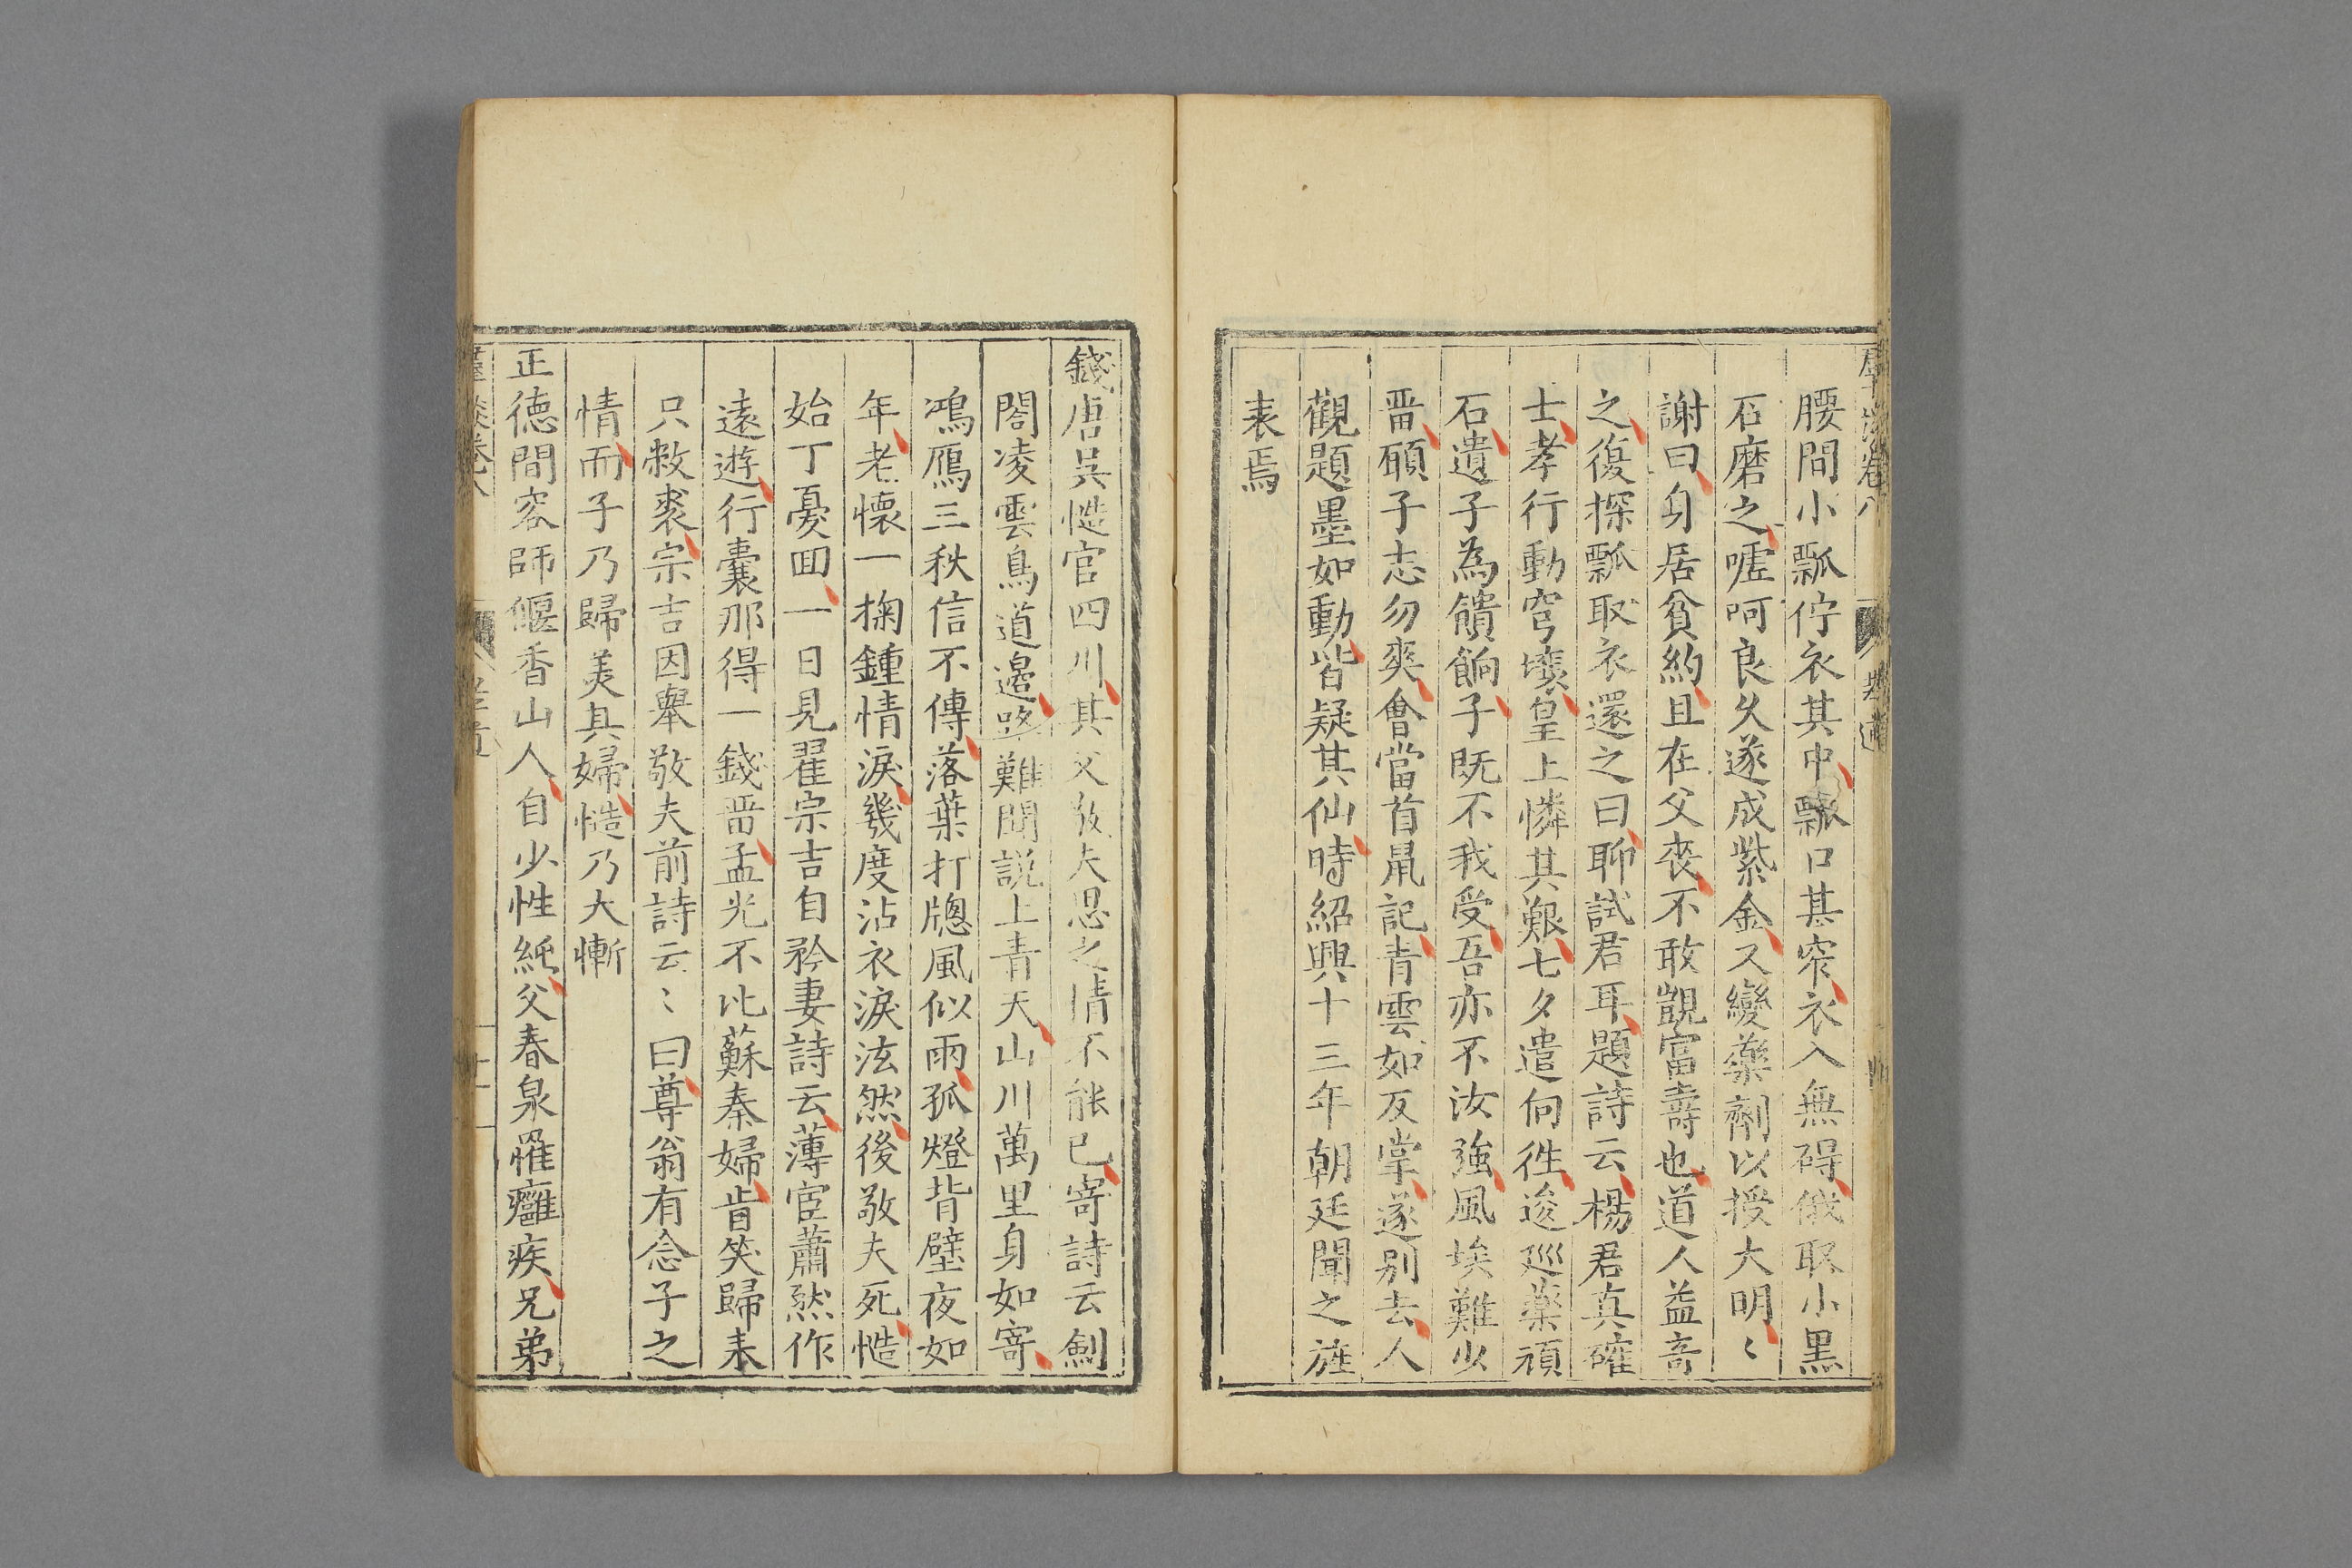 腰間小瓢佇衣其中瓢口甚窄衣入無碍俄取小黒
石磨之嘘呵良久遂成紫金又變藥劑以授大明〻
謝曰身居貧約且在父喪不敢覬富壽也道人益奇
之復探瓢取衣還之曰聊試君耳題詩云楊君真確
士孝行動穹壤皇上憐其艱七夕遣徃逡巡藥頑
石遺子為饋餉子既不我受吾亦不汝強風埃難少
畱願子志勿爽會當首鼠記青雲如反掌遂别去人
觀題墨如動皆疑其仙時紹興十三年朝廷聞之旌
表焉
錢唐吳慥官四川其父敬夫思之情不能已寄詩云劍
閣凌雲鳥道邉路難聞説上青天山川萬里身如寄
鴻鴈三秋信不傳落葉打牕風似雨孤燈背壁夜如
年老懷一掬鍾情淚幾度沾衣淚泫然後敬夫死慥
始丁憂囬一日見瞿宗吉自矜妻詩云薄宦蕭然作
遠遊行囊那得一錢畱孟光不比蘇秦婦肯笑歸来
只敝裘宗吉因舉敬夫前詩云〻曰尊翁有念子之
情而子乃歸美其婦慥乃大慚
正徳間容師偃香山人自少性純父春泉罹癰疾兄弟